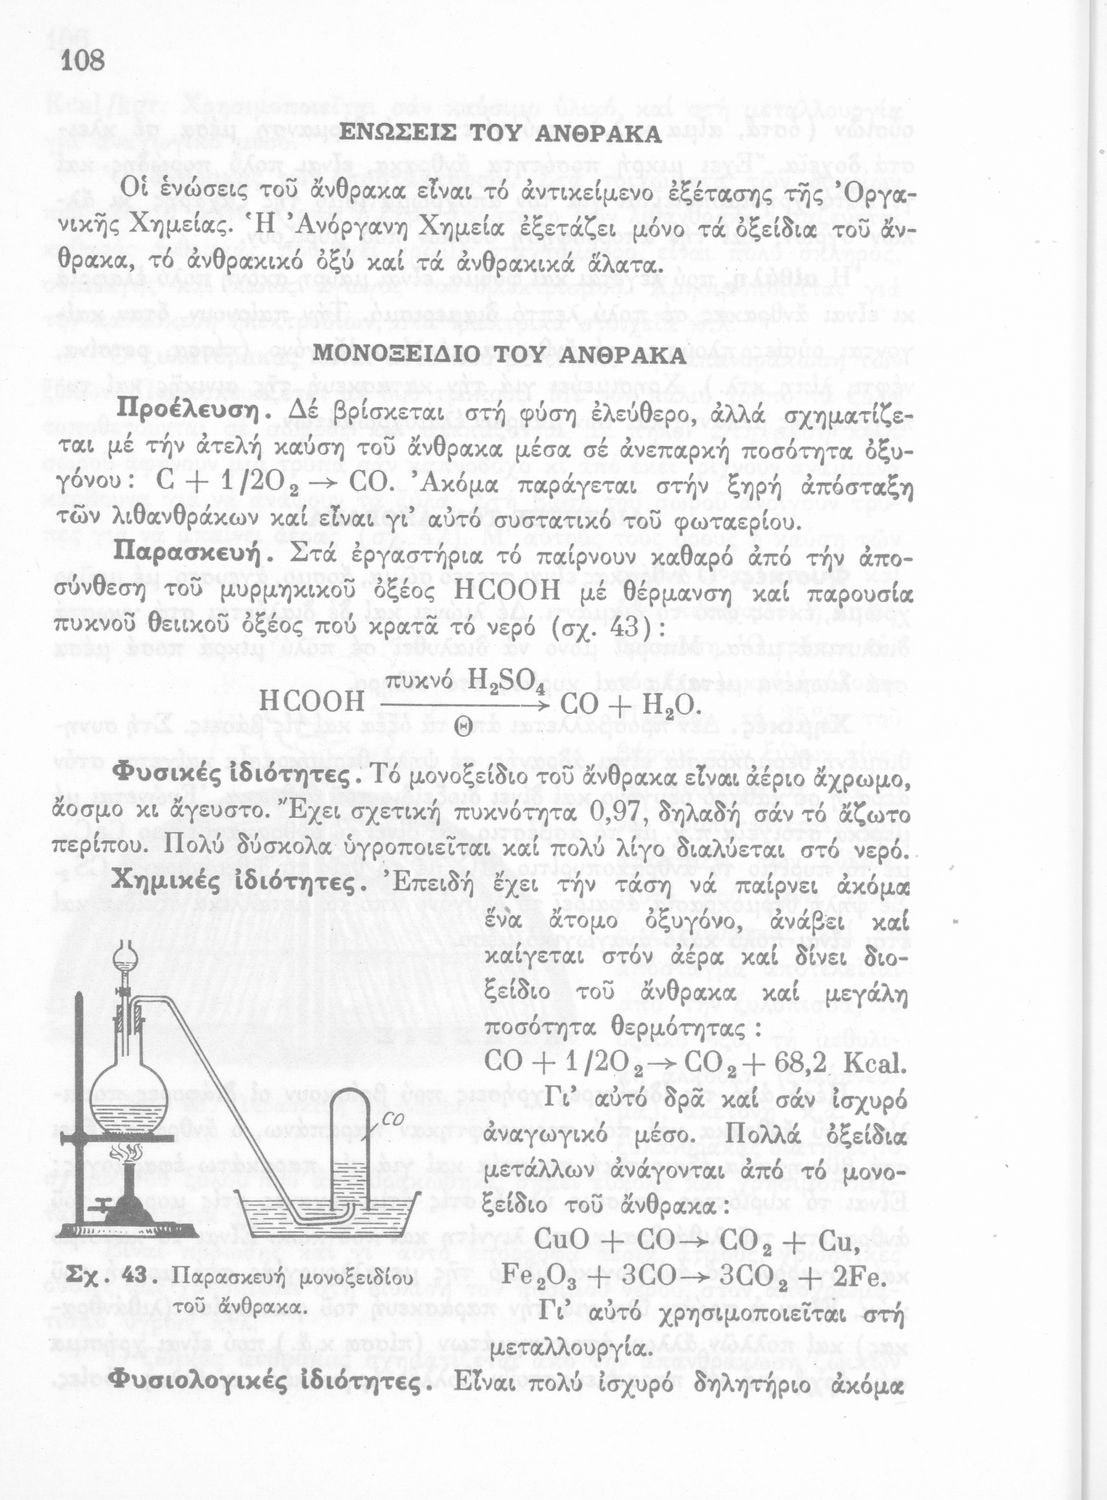 108
ΕΝΩΣΕΙΣ ΤΟΥ ΑΝΘΡΑΚΑ
Οἱ ἑνώσεις τοῦ ἄνθρακα εἶναι τό ἀντικείμενο ἐξέτασης τῆς Ὀργα-
νικῆς Χημείας. Ἡ Ἀνόργανη Χημεία ἐξετάζει μόνο τά ὀξείδια τοῦ ἄν-
θρακα, τό ἀνθρακικό ὀξύ καί τά ἀνθρακικά ἅλατα.
ΜΟΝΟΞΕΙΔΙΟ ΤΟΥ ΑΝΘΡΑΚΑ
Προέλευση. Δέ βρίσκεται στή φύση ἐλεύθερο, ἀλλά σχηματίζε-
ται μέ τήν ἀτελή καύση τοῦ ἄνθρακα μέσα σέ ἀνεπαρκή ποσότητα ὀξυ-
γόνου: C + 1/2O₂ → CO. Ἀκόμα παράγεται στήν ξηρή ἀπόσταξη
τῶν λιθανθράκων καί εἶναι γι’ αὐτό συστατικό τοῦ φωταερίου.
Παρασκευή. Στά ἐργαστήρια τό παίρνουν καθαρό ἀπό τήν ἀπο-
σύνθεση τοῦ μυρμηκικοῦ ὀξέος HCOOH μέ θέρμανση καί παρουσία
πυκνοῦ θειικοῦ ὀξέος πού κρατᾶ τό νερό (σχ. 43):
πυκνό H₂SO₄
HCOOH → CO + H₂O.
Θ
Φυσικές ἰδιότητες. Τό μονοξείδιο τοῦ ἄνθρακα εἶναι ἀέριο ἄχρωμο,
ἄοσμο κι ἄγευστο. Ἔχει σχετική πυκνότητα 0,97, δηλαδή σάν τό ἄζωτο
περίπου. Πολύ δύσκολα ὑγροποιεῖται καί πολύ λίγο διαλύεται στό νερό.
Χημικές ἰδιότητες. Ἐπειδή ἔχει τήν τάση νά παίρνει ἀκόμα
ἕνα ἄτομο ὀξυγόνο, ἀνάβει καί
καίγεται στόν ἀέρα καί δίνει διο-
ξείδιο τοῦ ἄνθρακα καί μεγάλη
ποσότητα θερμότητας :
CO + 1/2O₂ → CO₂ + 68,2 Kcal.
Γι’ αὐτό δρᾶ καί σάν ἰσχυρό
ἀναγωγικό μέσο. Πολλά ὀξείδια
μετάλλων ἀνάγονται ἀπό τό μονο-
ξείδιο τοῦ ἄνθρακα:
CuO + CO → CO₂ + Cu,
Fe₂O₃ + 3CO → 3CO₂ + 2Fe.
Γι’ αὐτό χρησιμοποιεῖται στή
μεταλλουργία.
CO
Σχ. 43. Παρασκευή μονοξειδίου
τοῦ ἄνθρακα.
Φυσιολογικές ἰδιότητες. Εἶναι πολύ ἰσχυρό δηλητήριο ἀκόμα